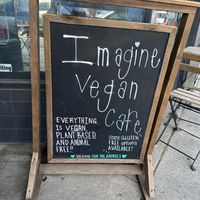 Imagine
Vegan
Cafe
EVERYTHING
IS VEGAN,
PLANT BASED
AND ANIMAL
FREE!!
SOY & GLUTEN
FREE OPTIONS
AVAILABLE!
VEGAN FOR THE ANIMALS